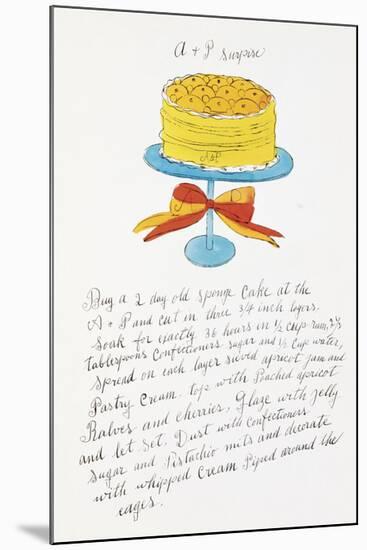 A + P Surprise
A&P
Buy a 2 day old sponge cake at the
A + P and cut in three 3/4 inch layers.
Soak for exactly 36 hours in 1/2 cup rum, 2 1/3
tablespoons confectioners sugar and 1/2 cup water,
Spread on each layer sieved apricot jam and
Pastry Cream. top with Poached apricot
Halves and cherries, Glaze with Jelly
and let set. Dust with Confectioners
Sugar and Pistachio nuts and decorate
with whipped Cream Piped around the
edges.